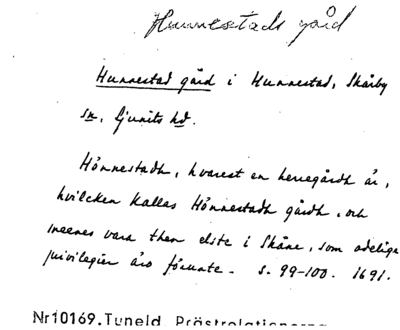 Hunnestads gård
Hunnestad gård i Hunnestad, Skårby
sn, Ljunits hd.
Hönnestadh, hvarest en herregårdh är,
hvilcken kallas Hönnestadh gårdh, och
meenes vara then elste i Skåne, som adelige
privilegier äro förunte. s. 99-100. 1691.
Nr10169. Tuneld, Prästrelationerna